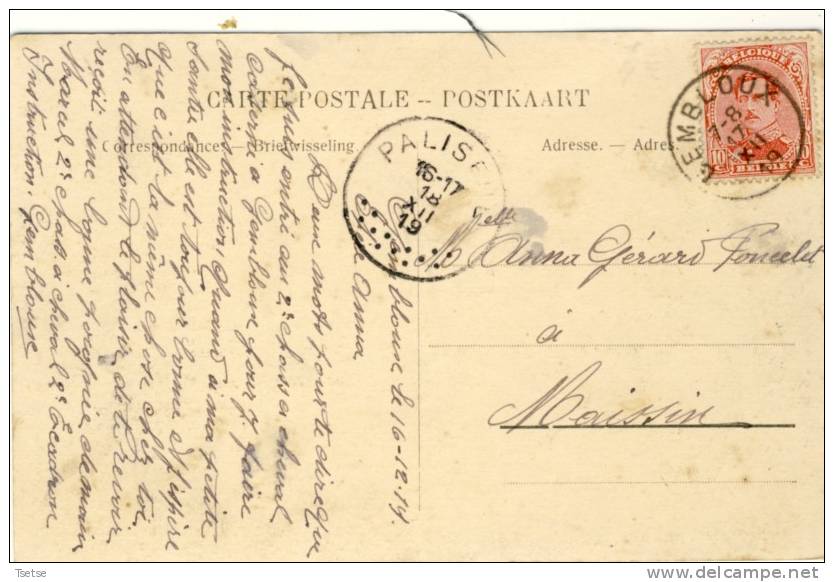 CARTE POSTALE -- POSTKAART
Correspondance - Briefwisseling
Adresse. — Adres.
BELGIQUE
10
BELGIË
GEMBLOUX
7-8
17
XII
19
PALISEUL
16-17
18
XII
19
Melle Anna Gérard Poncelet
à
Maissin
Gembloux Le 16-12-19.
Anna
Deux mots pour te dire que
je suis entré au 2e chas a cheval
caserné a Gembloux pour y faire
mon instruction. Quand a ma petite
santé elle est toujour bonne et j'espère
que c'est la même chose chez toi
En attendant le plaisir de te revoir
reçoit une bonne poignée de main
Marcel 2e chas. à cheval 2e Ecadron
Instruction. Gembloux
Tsetse